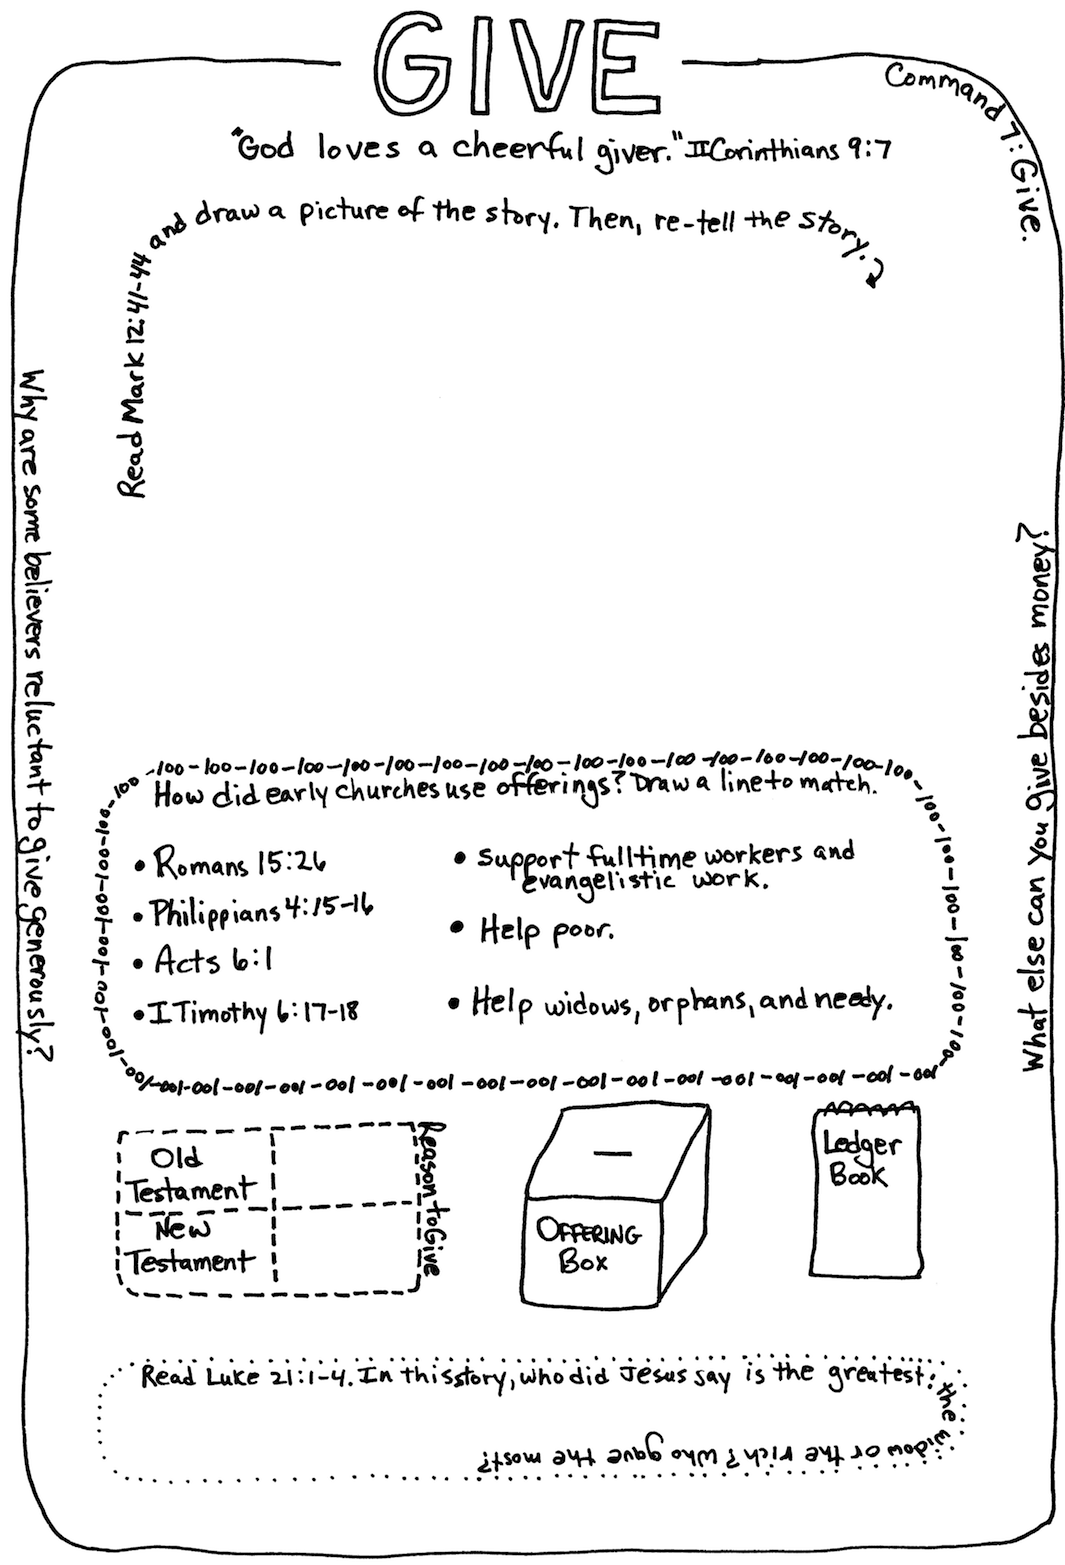 GIVE
Command 7: Give.
"God loves a cheerful giver." II Corinthians 9:7
Read Mark 12:41-44 and draw a picture of the story. Then, re-tell the story.
Why are some believers reluctant to give generously?
What else can you give besides money?
-100-100-100-100-100-100-100-100-100-100-100-100-100-100-100-100-100
How did early churches use offerings? Draw a line to match.
• Romans 15:26
• Philippians 4:15-16
• Acts 6:1
• I Timothy 6:17-18
• Support fulltime workers and
evangelistic work.
• Help poor.
• Help widows, orphans, and needy.
Old
Testament
New
Testament
Reason to Give
OFFERING
BOX
Ledger
Book
Read Luke 21:1-4. In this story, who did Jesus say is the greatest: the widow or the rich? Who gave the most?